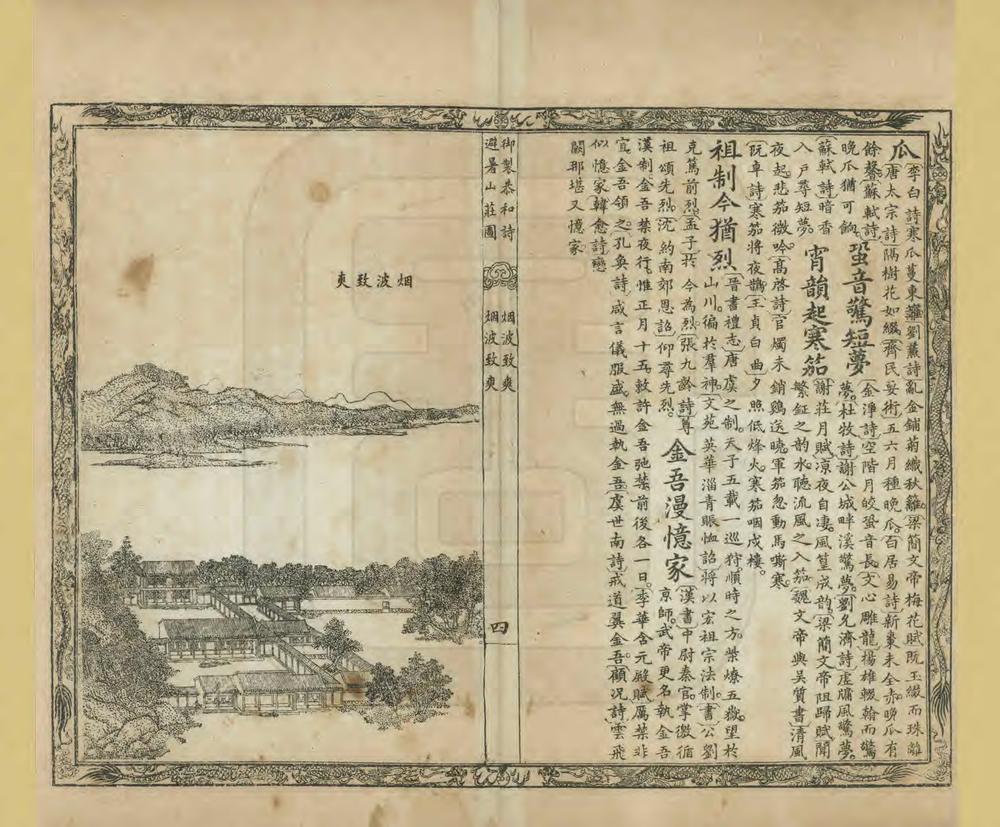 瓜
李白詩寒瓜蔓東籬劉詩亂金鋪菊織秋籬梁簡文帝梅花賦既玉綴而珠離
唐太宗詩隔樹花如綴齊民要術五六月種晚瓜百居易詩新棗未全赤晚瓜有
餘馨蘇軾詩
晚瓜猶可餉
蛩音驚短夢
金淨詩空階月皎蛩音長文心雕龍揚雄輟翰而驚
夢杜牧詩謝公城畔溪驚夢劉允濟詩虛牖風驚夢
蘇軾詩暗香
入戶尋短夢
宵韻起寒笳
謝莊月賦涼夜自淒風篁成韵梁簡文帝阻歸賦聞
繁鉦之韵水聽流風之入笳魏文帝與吳質書清風
夜起悲笳微吟高啓詩官燭未銷鷄送曉軍笳忽動馬嘶寒
阮卓詩寒笳將夜鵲王貞白曲夕照低烽火寒笳咽戍樓
祖制今猶烈
晉書禮志唐虞之制天子五載一巡狩順時之方柴燎五嶽望於
山川徧於羣神文苑英華淄青賑恤詔將以宏祖宗法制書公劉
克篤前烈孟子於今為烈張九齡詩尊
祖頌先烈沈約南郊恩詔仰尋先烈
金吾漫憶家
漢書中尉秦官掌徼循
京師武帝更名執金吾
漢制金吾禁夜行惟正月十五敕許金吾弛禁前後各一日李華含元殿賦厲禁非
宜金吾領之孔奐詩咸言儀服盛無過執金吾虞世南詩戒道翼金吾顧況詩雲飛
似憶家韓愈詩戀
闕那堪又憶家
御製恭和詩
避暑山莊圖
烟波致爽
烟波致爽
四
烟波致爽